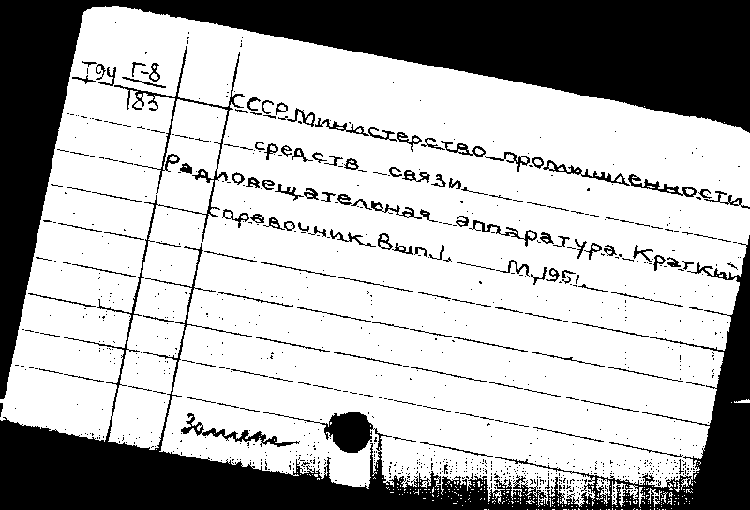 Т94 Г-8
183
СССР. Министерство промышленности
средств связи.
Радиовещательная аппаратура. Краткий
справочник. Вып. 1. М., 1951.
Замена